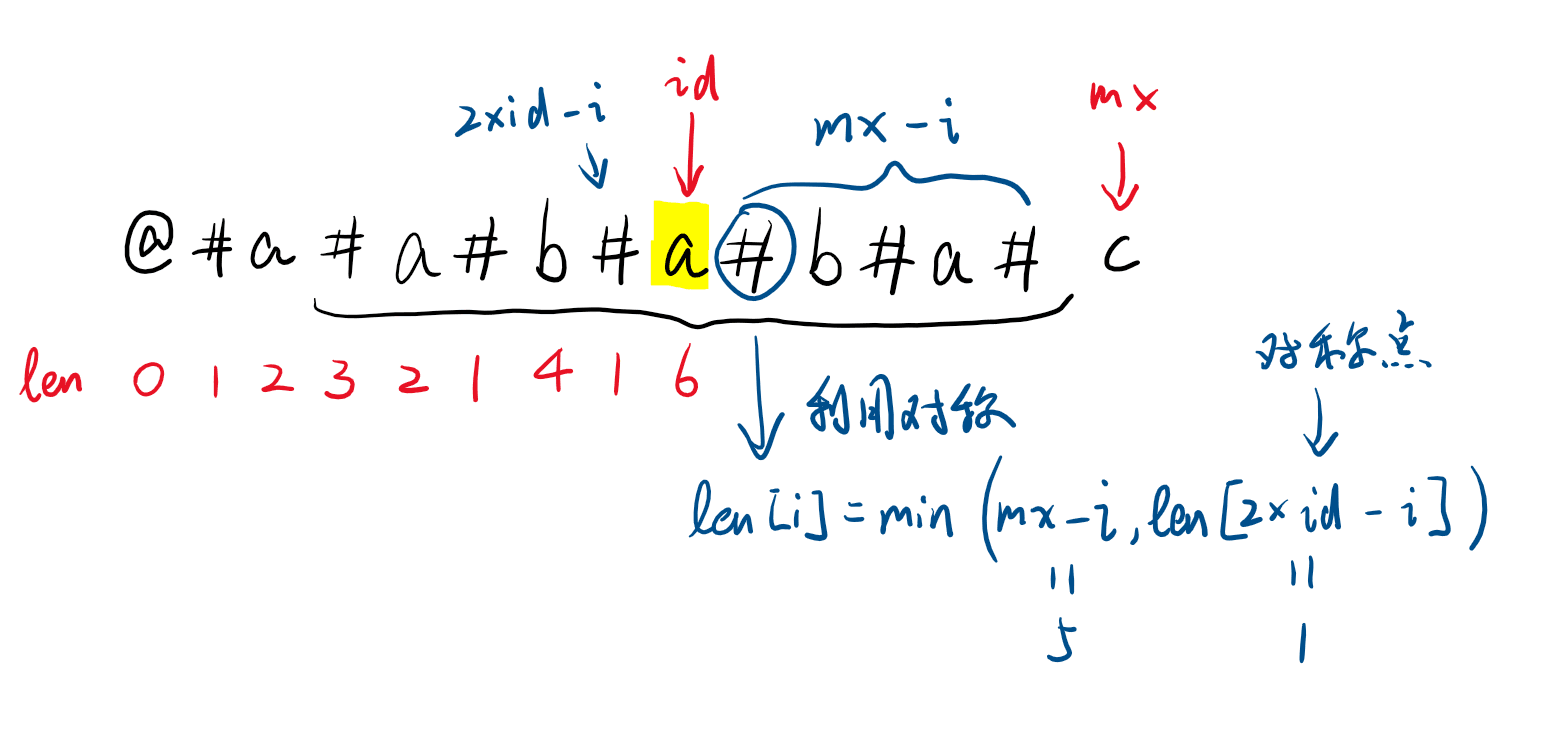 id
mx
2×id-i
mx-i
@#a#a#b#a#b#a#c
len 0 1 2 3 2 1 4 1 6
对称点
利用对称
len[i]=min(mx-i,len[2×id-i])
=  =
5  1